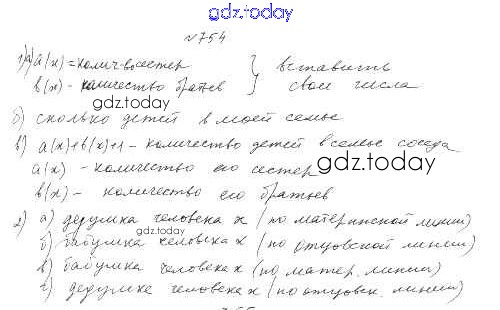 gdz.today
№754
1) а) a(x) = колич-во сестер } вставить
b(x) - количество братьев } свои числа
gdz.today
б) сколько детей в моей семье
в) a(x)+b(x)+1 - количество детей в семье соседа
a(x) - количество его сестер
gdz.today
b(x) - количество его братьев
2) а) дедушка человека x (по материнской линии)
gdz.today
б) бабушка человека x (по отцовской линии)
в) бабушка человека x (по матер. линии)
г) дедушка человека x (по отцовск. линии)